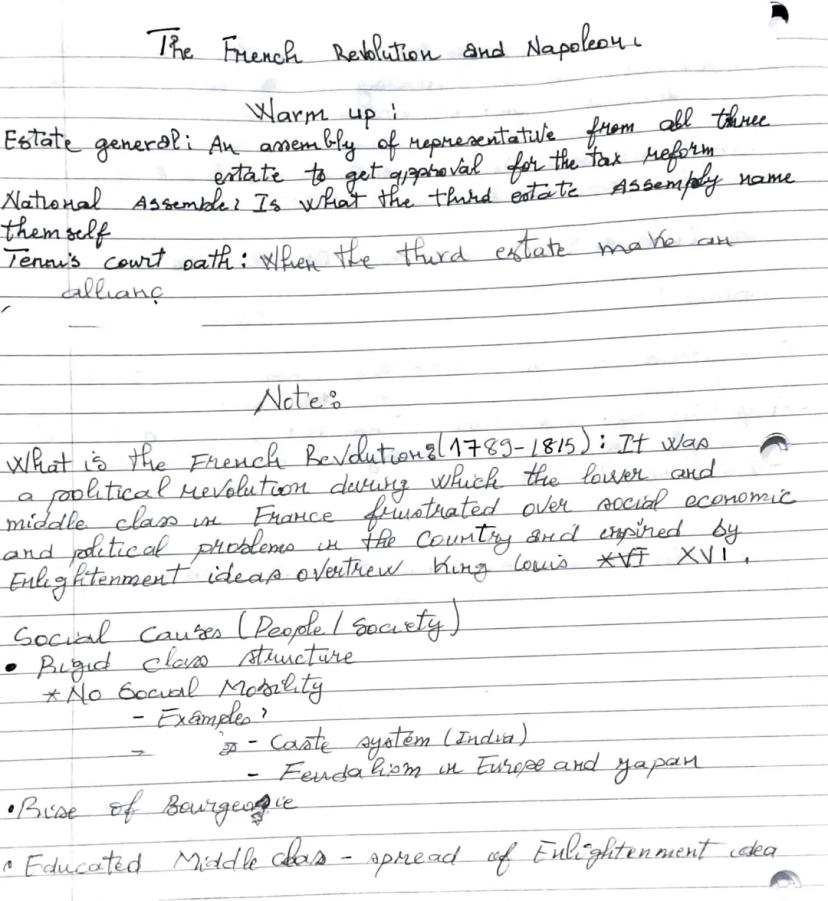 The French Revolution and Napoleon:
Warm up:
Estate general: An assembly of representative from all three
estate to get approval for the tax reform
National Assemble: Is what the third estate Assembly name
themself
Tennis court oath: When the third estate make an
allianç
Note:
What is the French Revolution:(1789-1815): It was
a political revolution during which the lower and
middle class in France frustrated over social economic
and political problems in the country and enspired by
Enlightenment ideas overtrew King Louis XVI XVI.
Social Causes (People/Society)
• Rigid class structure
* No Social Mobility
- Examples:
- Caste system (India)
- Feudalism in Europe and yapan
• Rise of Bourgeosie
• Educated Middle class - spread of Enlightenment idea